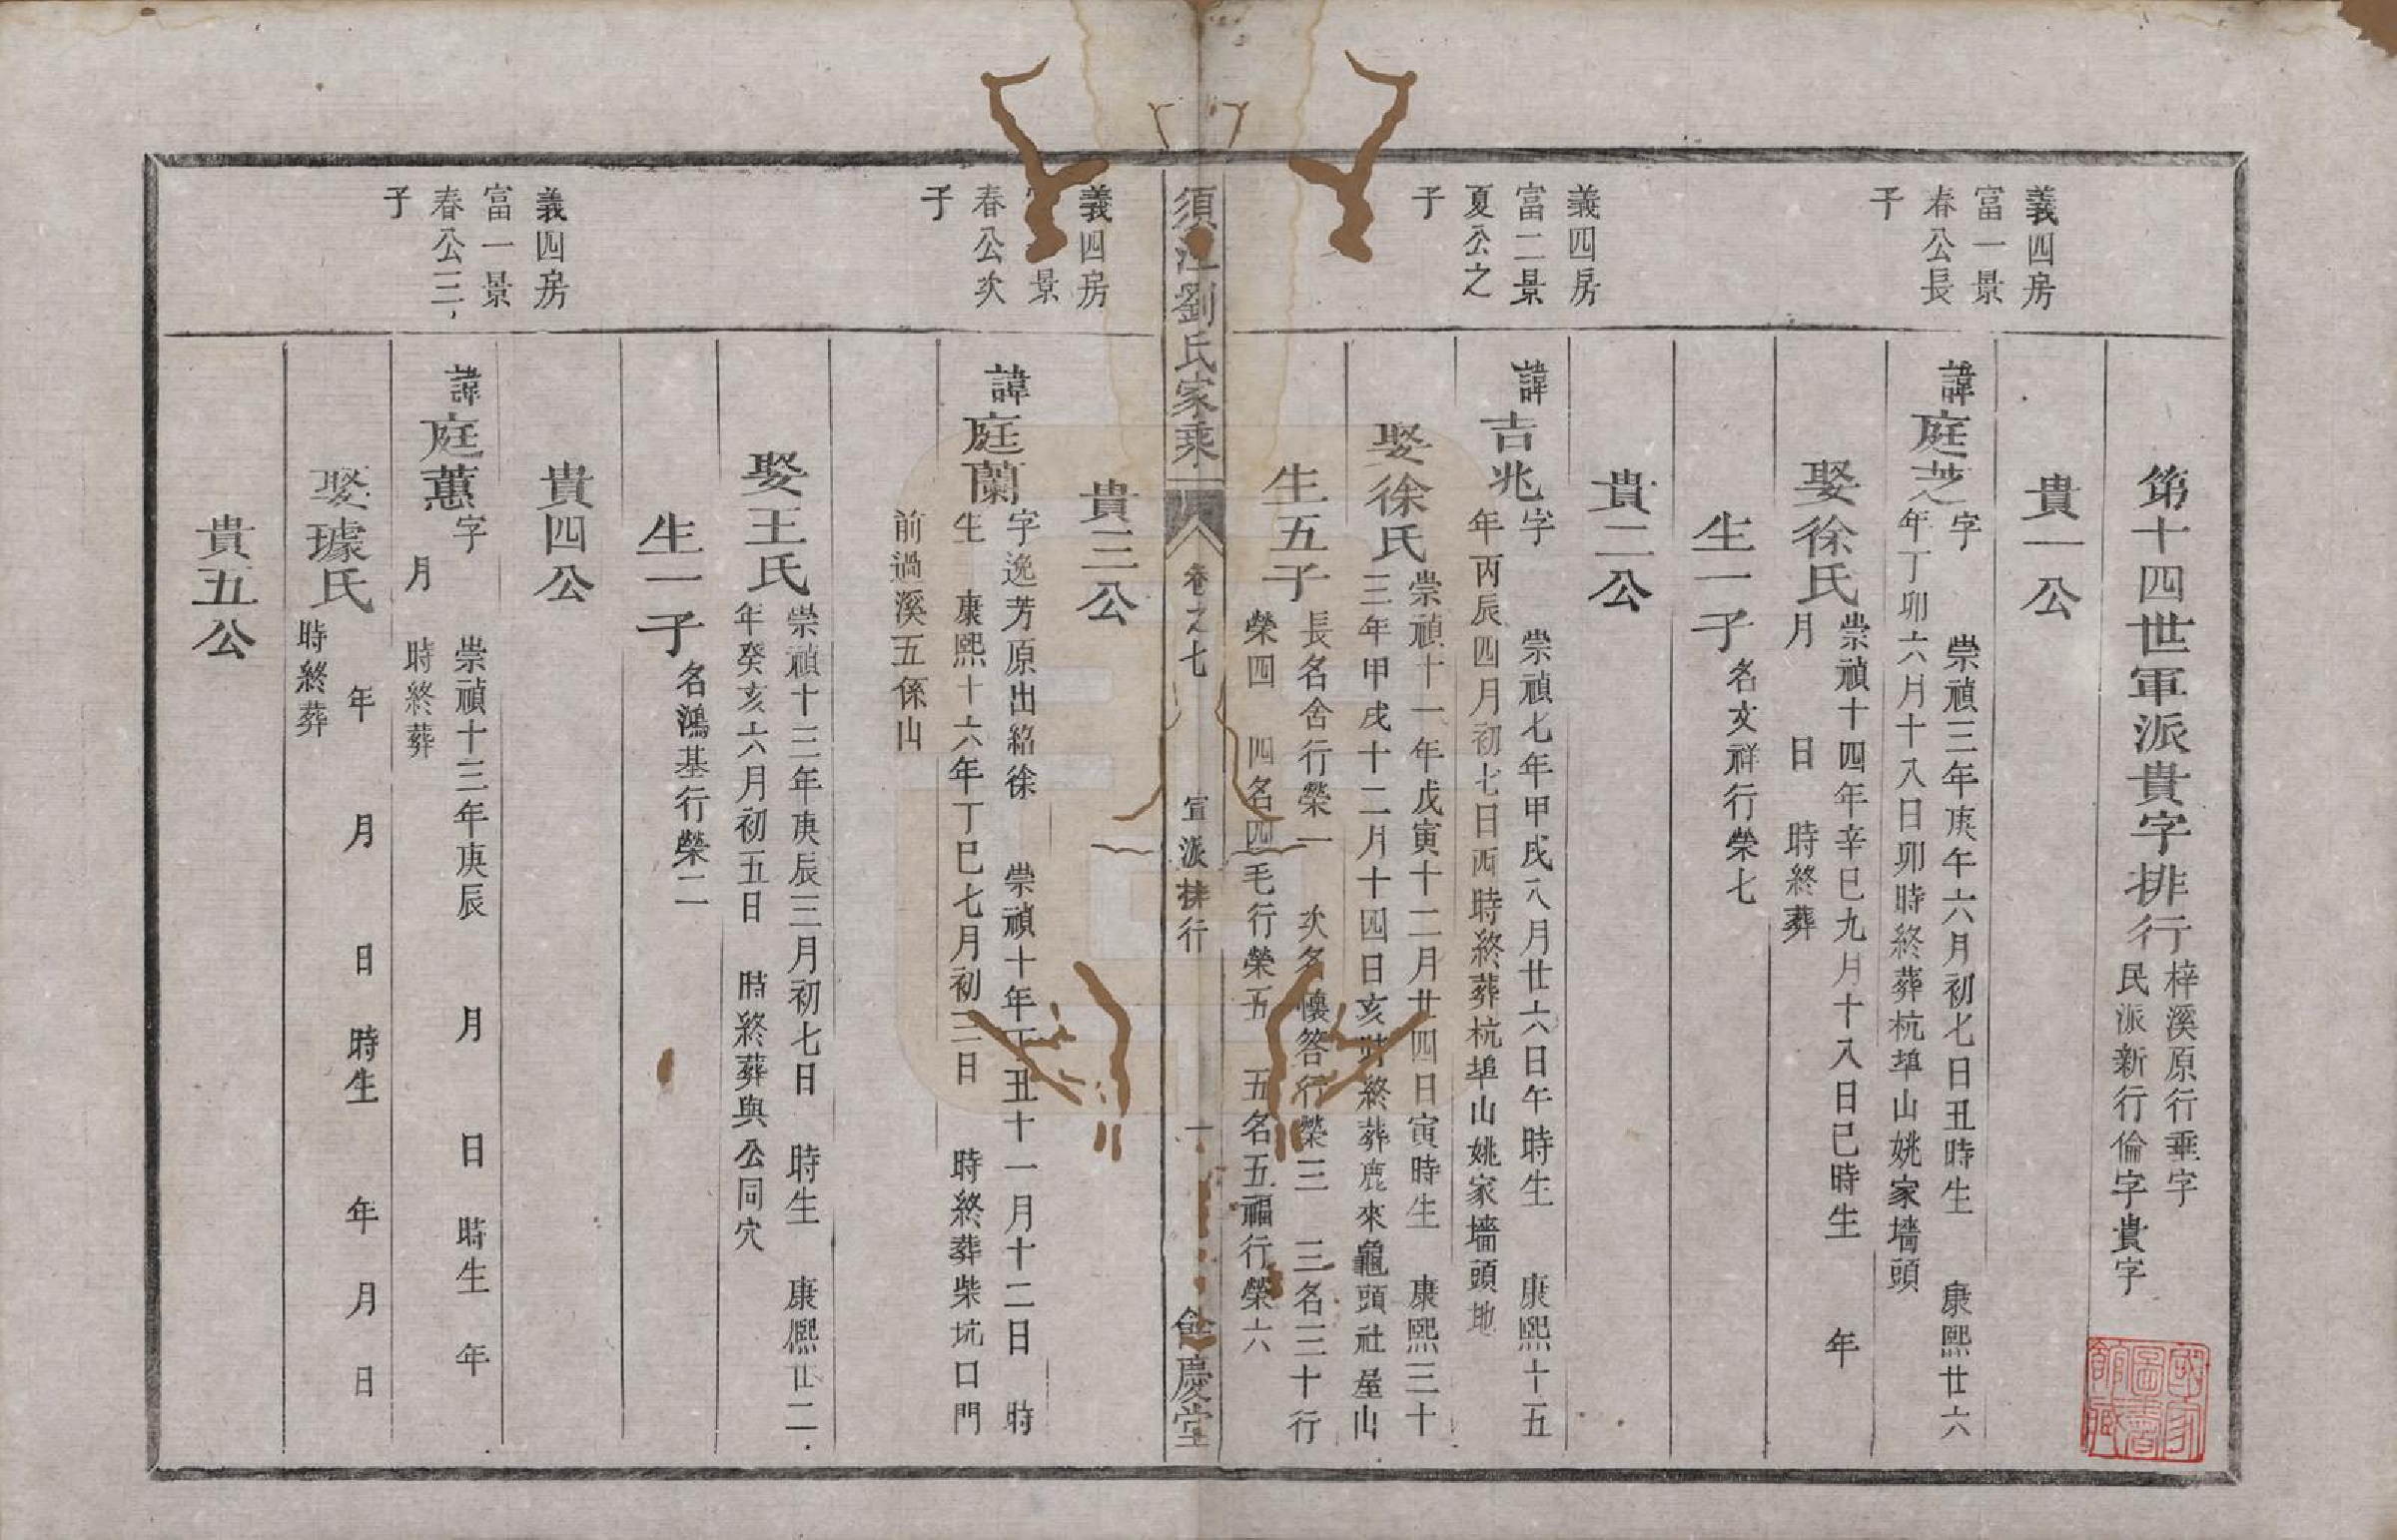 第十四世軍派貴字排行
梓溪原行垂字
民派新行倫字貴字
貴一公
義四房
富一景
春公長
子
諱庭芝
字 崇禎三年庚午六月初七日丑時生 康熙廿六
年丁卯六月十八日卯時終葬杭埠山姚家墻頭
娶徐氏
崇禎十四年辛巳九月十八日巳時生 年
月 日 時終葬
生一子
名文祥行榮七
貴二公
義四房
富二景
夏公之
子
諱吉兆
字 崇禎七年甲戌八月廿六日午時生 康熙十五
年丙辰四月初七日酉時終葬杭埠山姚家墻頭地
娶徐氏
崇禎十一年戊寅十二月廿四日寅時生 康熙三十
三年甲戌十二月十四日亥時終葬鹿來龜頭社屋山
生五子
長名舍行榮一 次名懷答行榮三 三名三十行
榮四 四名四毛行榮五 五名五福行榮六
須江劉氏家乘
卷之七
軍派排行
十
餘慶堂
貴三公
義四房
景
春公次
子
諱庭蘭
字逸芳原出紹徐 崇禎十年丁丑十一月十二日 時
生 康熙十六年丁巳七月初三日 時終葬柴坑口門
前過溪五係山
娶王氏
崇禎十三年庚辰三月初七日 時生 康熙廿二
年癸亥六月初五日 時終葬與公同穴
生一子
名鴻基行榮二
貴四公
義四房
富一景
春公三
子
諱庭蕙
字 崇禎十三年庚辰 月 日 時生 年
月 時終葬
娶璩氏
年 月 日 時生 年 月 日
時終葬
貴五公
國家
圖書
館藏